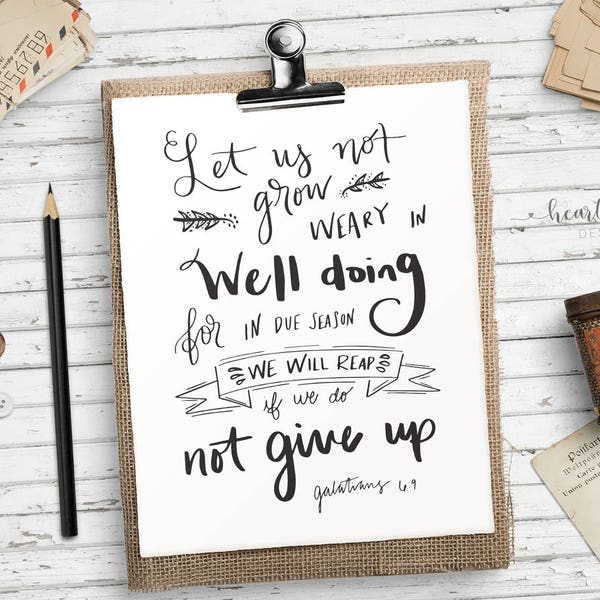 Let us not
grow
WEARY IN
Well doing
for IN DUE SEASON
WE WILL REAP
if we do
not give up
galatians 6:9
heart
DES
Postkart
Weltpostver
Carte po
Union posta